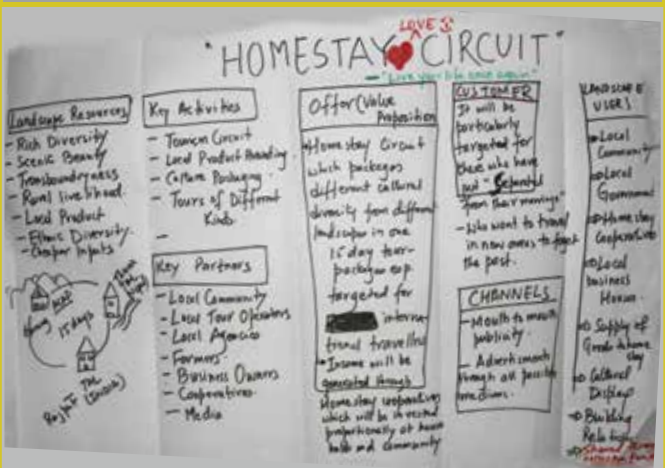 LOVE
"HOMESTAY CIRCUIT"
"Live your life once again"
Landscape Resources
- Rich Diversity
- Scenic Beauty
- Transboundryness
- Rural livelihood
- Local Product
- Ethnic Diversity
- Cheaper Inputs
15 days
Key Activities
- Tourism Circuit
- Local Product Branding
- Culture Packaging
- Tours of Different
Kinds
Key Partners
- Local Community
- Local Tour Operators
- Local Agencies
- Farmers
- Business Owners
- Cooperatives
- Media
Offer (Value
Proposition
Homestay Circuit
which packages
different cultural
diversity from different
landscapes in one
15 day tour-
package
targeted for
interna-
tional travellers
Income will be
generated through
Homestay cooperatives
which will be invested
proportionately at house
hold and community
CUSTOMER
It will be
particularly
targeted for
those who have
just
from their marriages"
- Who want to travel
in new areas to forget
the past.
CHANNELS
- Mouth to mouth
publicity.
- Advertisment
through all possible
mediums.
LANDSCAPE
USERS
Local
Community
Local
Government
Homestay
Cooperatives
Local
business
Houses
Supply of
Goods to home
stay
Cultural
Displays
Building
Relation